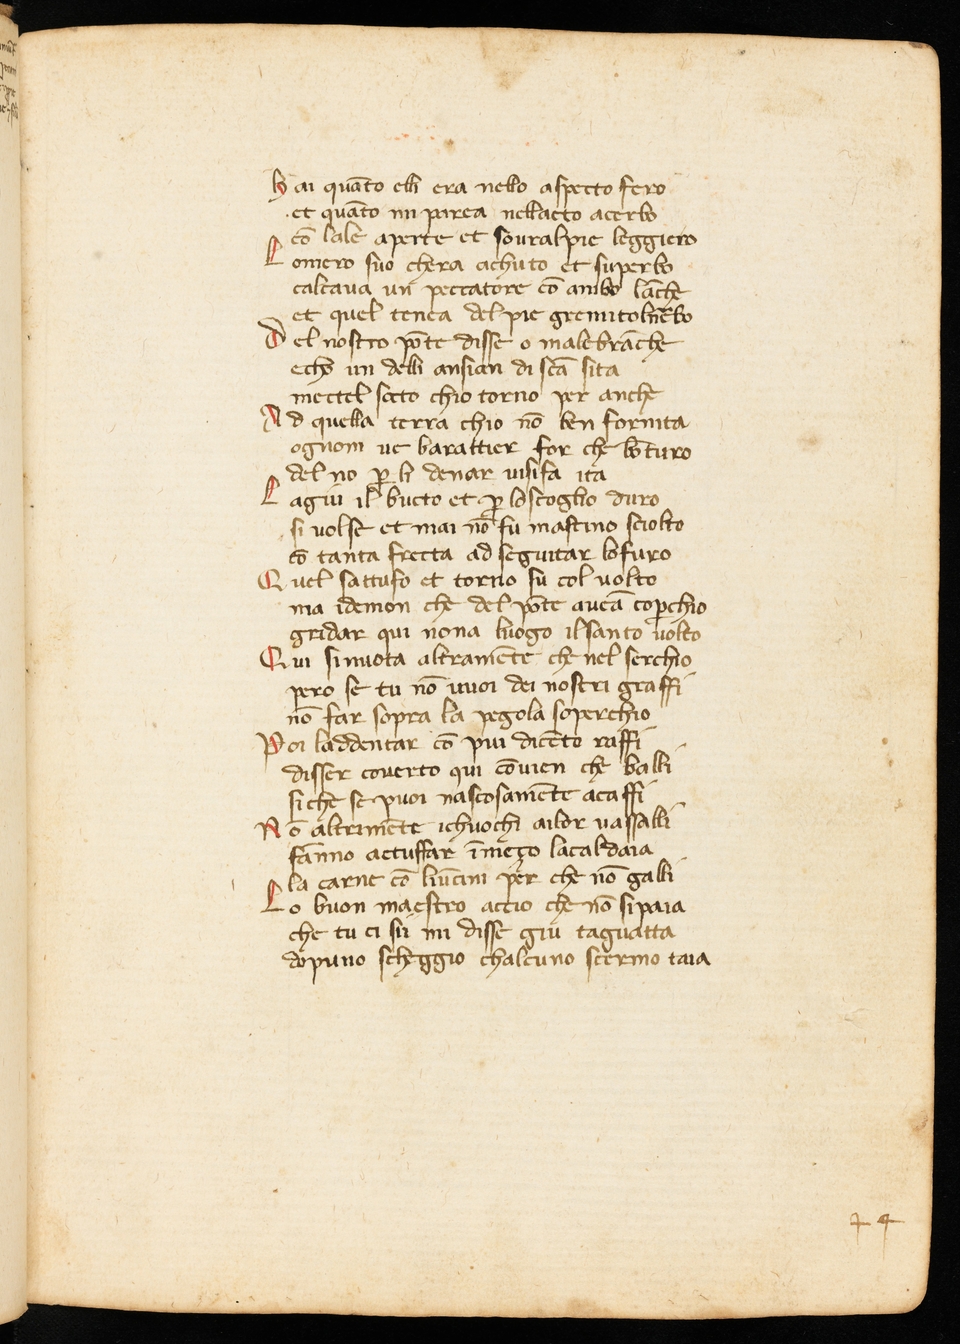 Hai quāto elli era nello aspecto fero
et quāto mi parea nellacto acerbo
cō lale aperte et souralpie leggiero
Lomero suo chera achuto et superbo
calcaua un peccatore cō ambo lāche
et quel tenea del pie gremitolnerbo
Del nostro pōte disse o malebrāche
echo un delli ansian di scā sita
mettel socto chio torno per anche
Ad quella terra chio nō ben fornita
ognom ue barattier for che bōturo
del no p li denar uisifa ita
Lagiu il bucto et p loscoglio duro
si uolse et mai nō fu mastino sciolto
cō tanta frecta ad seguitar lofuro
Quel sattufo et torno su col uolto
ma idemon che del pōte aueā coperchio
gridar qui nona luogo ilsanto uolto
Qui sinuota altramēte che nel serchio
pero se tu nō uuoi dei nostri graffi
nō far sopra la pegola soperchio
Poi laddentar cō piu dicēto raffi
disser couerto qui cōuien che balli
siche se puoi nascosamēte acaffi
Nō altrimēte ichuochi ailor uassalli
fānno actuffar īmeço lacaldaia
la carne cō liūcini per che nō galli
Lo buon maestro accio che nō sipaia
che tu ci sii mi disse giu taguatta
dopuno scheggio chalcuno scermo taia